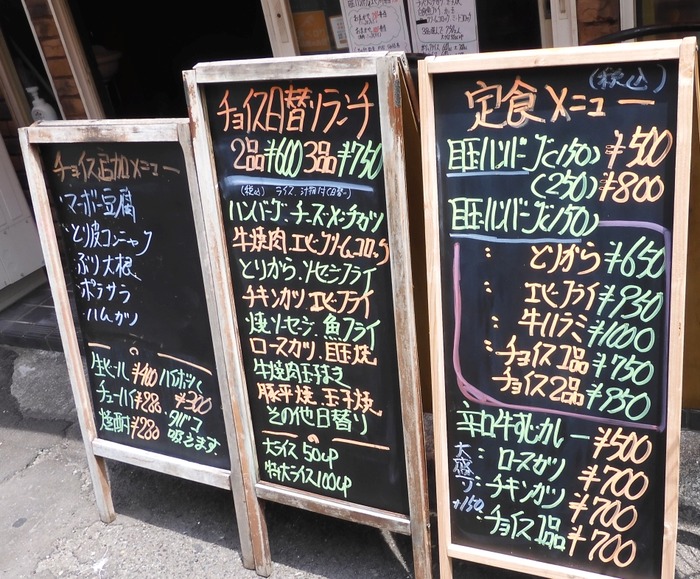 チョイス追加メニュー
・マーボー豆腐
・とり皮コンニャク
・ぶり大根
・ポテサラ
・ハムカツ
生ビール¥400 ハイボール
¥300
チューハイ¥280 タバコ
焼酎¥280 吸えます。
チョイス日替りランチ
2品¥600 3品¥750
(税込) ライス、汁物付(日替り)
ハンバーグ、チーズ・メンチカツ
牛焼肉、エビ・クリームコロッケ
とりから、ソセージフライ
チキンカツ、エビ・フライ
焼ソセージ、魚フライ
ロースカツ、目玉焼
牛焼肉玉子まき
豚平焼、玉子焼
その他日替り
大ライス 50円
特大ライス100円
定食メニュー
(税込)
目玉ハンバーグ(150) ¥500
(250) ¥800
目玉ハンバーグ(150)
: とりから ¥650
: エビ・フライ ¥950
: 牛ハラミ ¥1000
: チョイス1品 ¥750
チョイス2品 ¥950
辛口牛すじカレー ¥500
: ロースカツ ¥700
: チキンカツ ¥700
: チョイス1品 ¥700
大盛り
+150